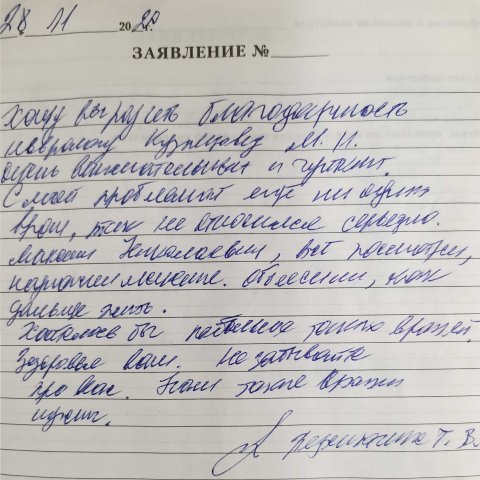 28 11 2020 г.
ЗАЯВЛЕНИЕ №
Хочу выразить благодарность
неврологу Кузнецову М. Н.
очень внимательный и чуткий.
С моей проблемой еще ни один
врач, так не относился серьезно.
Максим Николаевич, всё посмотрел,
назначил лечение. Объяснил, как
дальше жить.
Хотелось бы побольше таких врачей.
Здоровья вам. Не забывайте
про нас. Нам такие врачи
нужны.
Т. В.